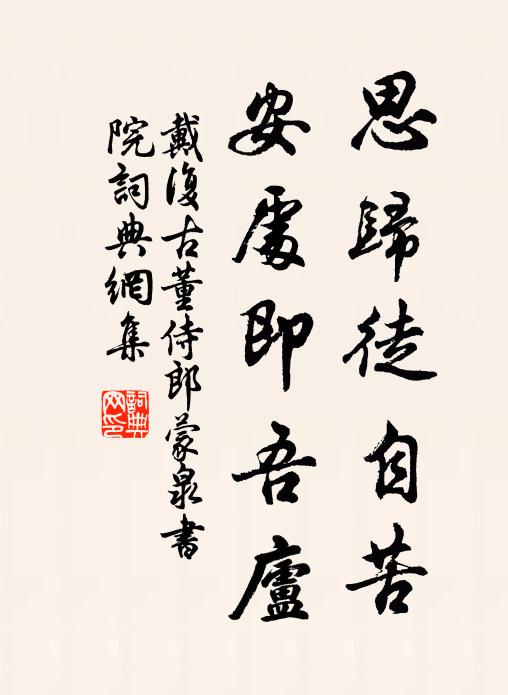 思歸徒自苦
安處即吾廬
戴復古董侍郎蒙泉書
院詞典網集
詞典网印